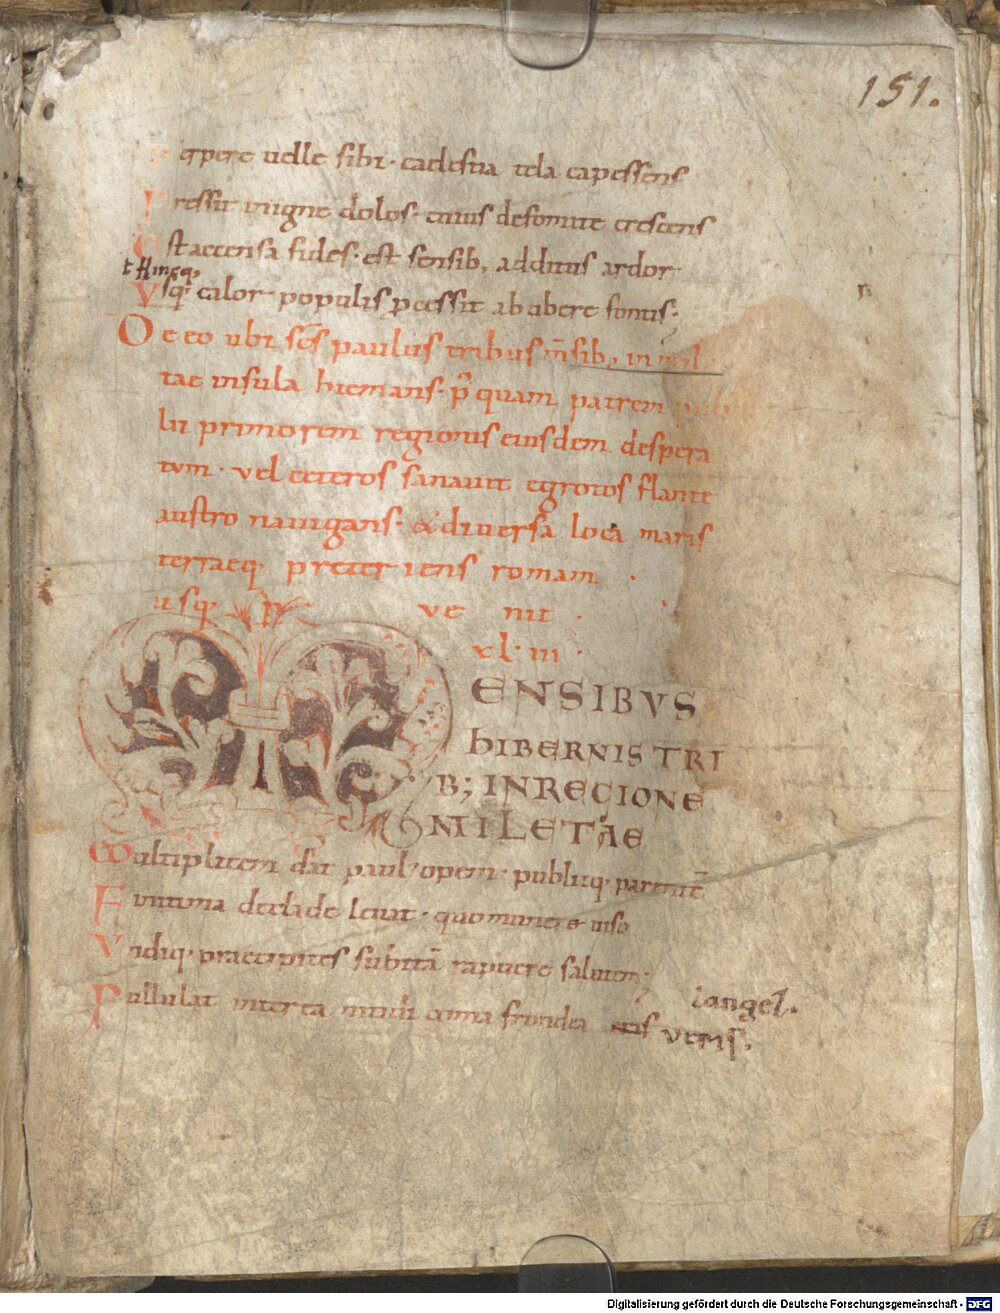 151.
erpere uelle sibi· caelestia tela capessens
Pressit inigne dolos· cuius defomite crescens
Est accensa fides· est sensib; additus ardor
ł Hincq;
Vsq; calor populis pcessit ab ubere fontis;
De eo ubi scs paulus tribus msib; in mili
tae insula hiemans· p quam patrem pub
lii primorem regionis eiusdem despera
tum· vel ceteros sanauit egrotos flante
austro nauigans· & diuersa loca maris
terraeq; preter iens romam
usq; p ve nit·
xl·iii·
ENSIBVS
hIBERNIS TRI
B; INREGIONE
MILETAE
Multiplicem dat paul' opem· publiiq; parente
Funtima declade leuat· quo munere uiso
Vndiq; praecipites subita rapuere salutem;
Pullulat interea nitidi coma frondea
iangel.
veris.
Digitalisierung gefördert durch die Deutsche Forschungsgemeinschaft - DFG